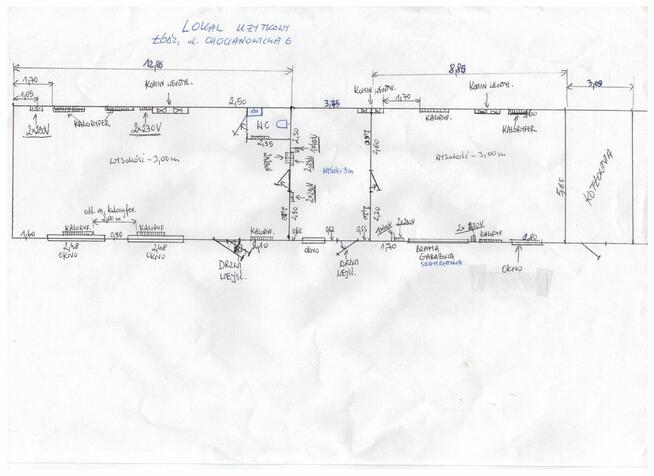 LOKAL UŻYTKOWY
ŁÓDŹ, ul. CHOCIANOWICKA 6
12,85
8,85
3,05
1,70
KOMIN WENTYL.
KOMIN WENTYL.
KOMIN WENTYL.
1,05
2,50
3,75
1,70
KALORYFER
KALORYF.
KALORYFER
2x230V
2x230V
WC
2,35
2,50
2,60
WYSOKOŚĆ - 3,00m
WYSOKOŚĆ - 3,00m
5,65
KOTŁOWNIA
odl. m. kaloryfer.
2,00m
KALORYF.
KALORYF.
KALORYF.
KALORYF.
2x230V
2x230V
2,20
1,60
2,48
0,80
2,48
OKNO
OKNO
DRZWI
WEJŚĆ.
OKNO
DRZWI
WEJŚ.
0,55
1,70
BRAMA
GARAŻOWA
SEGMENTOWA
1,80
OKNO